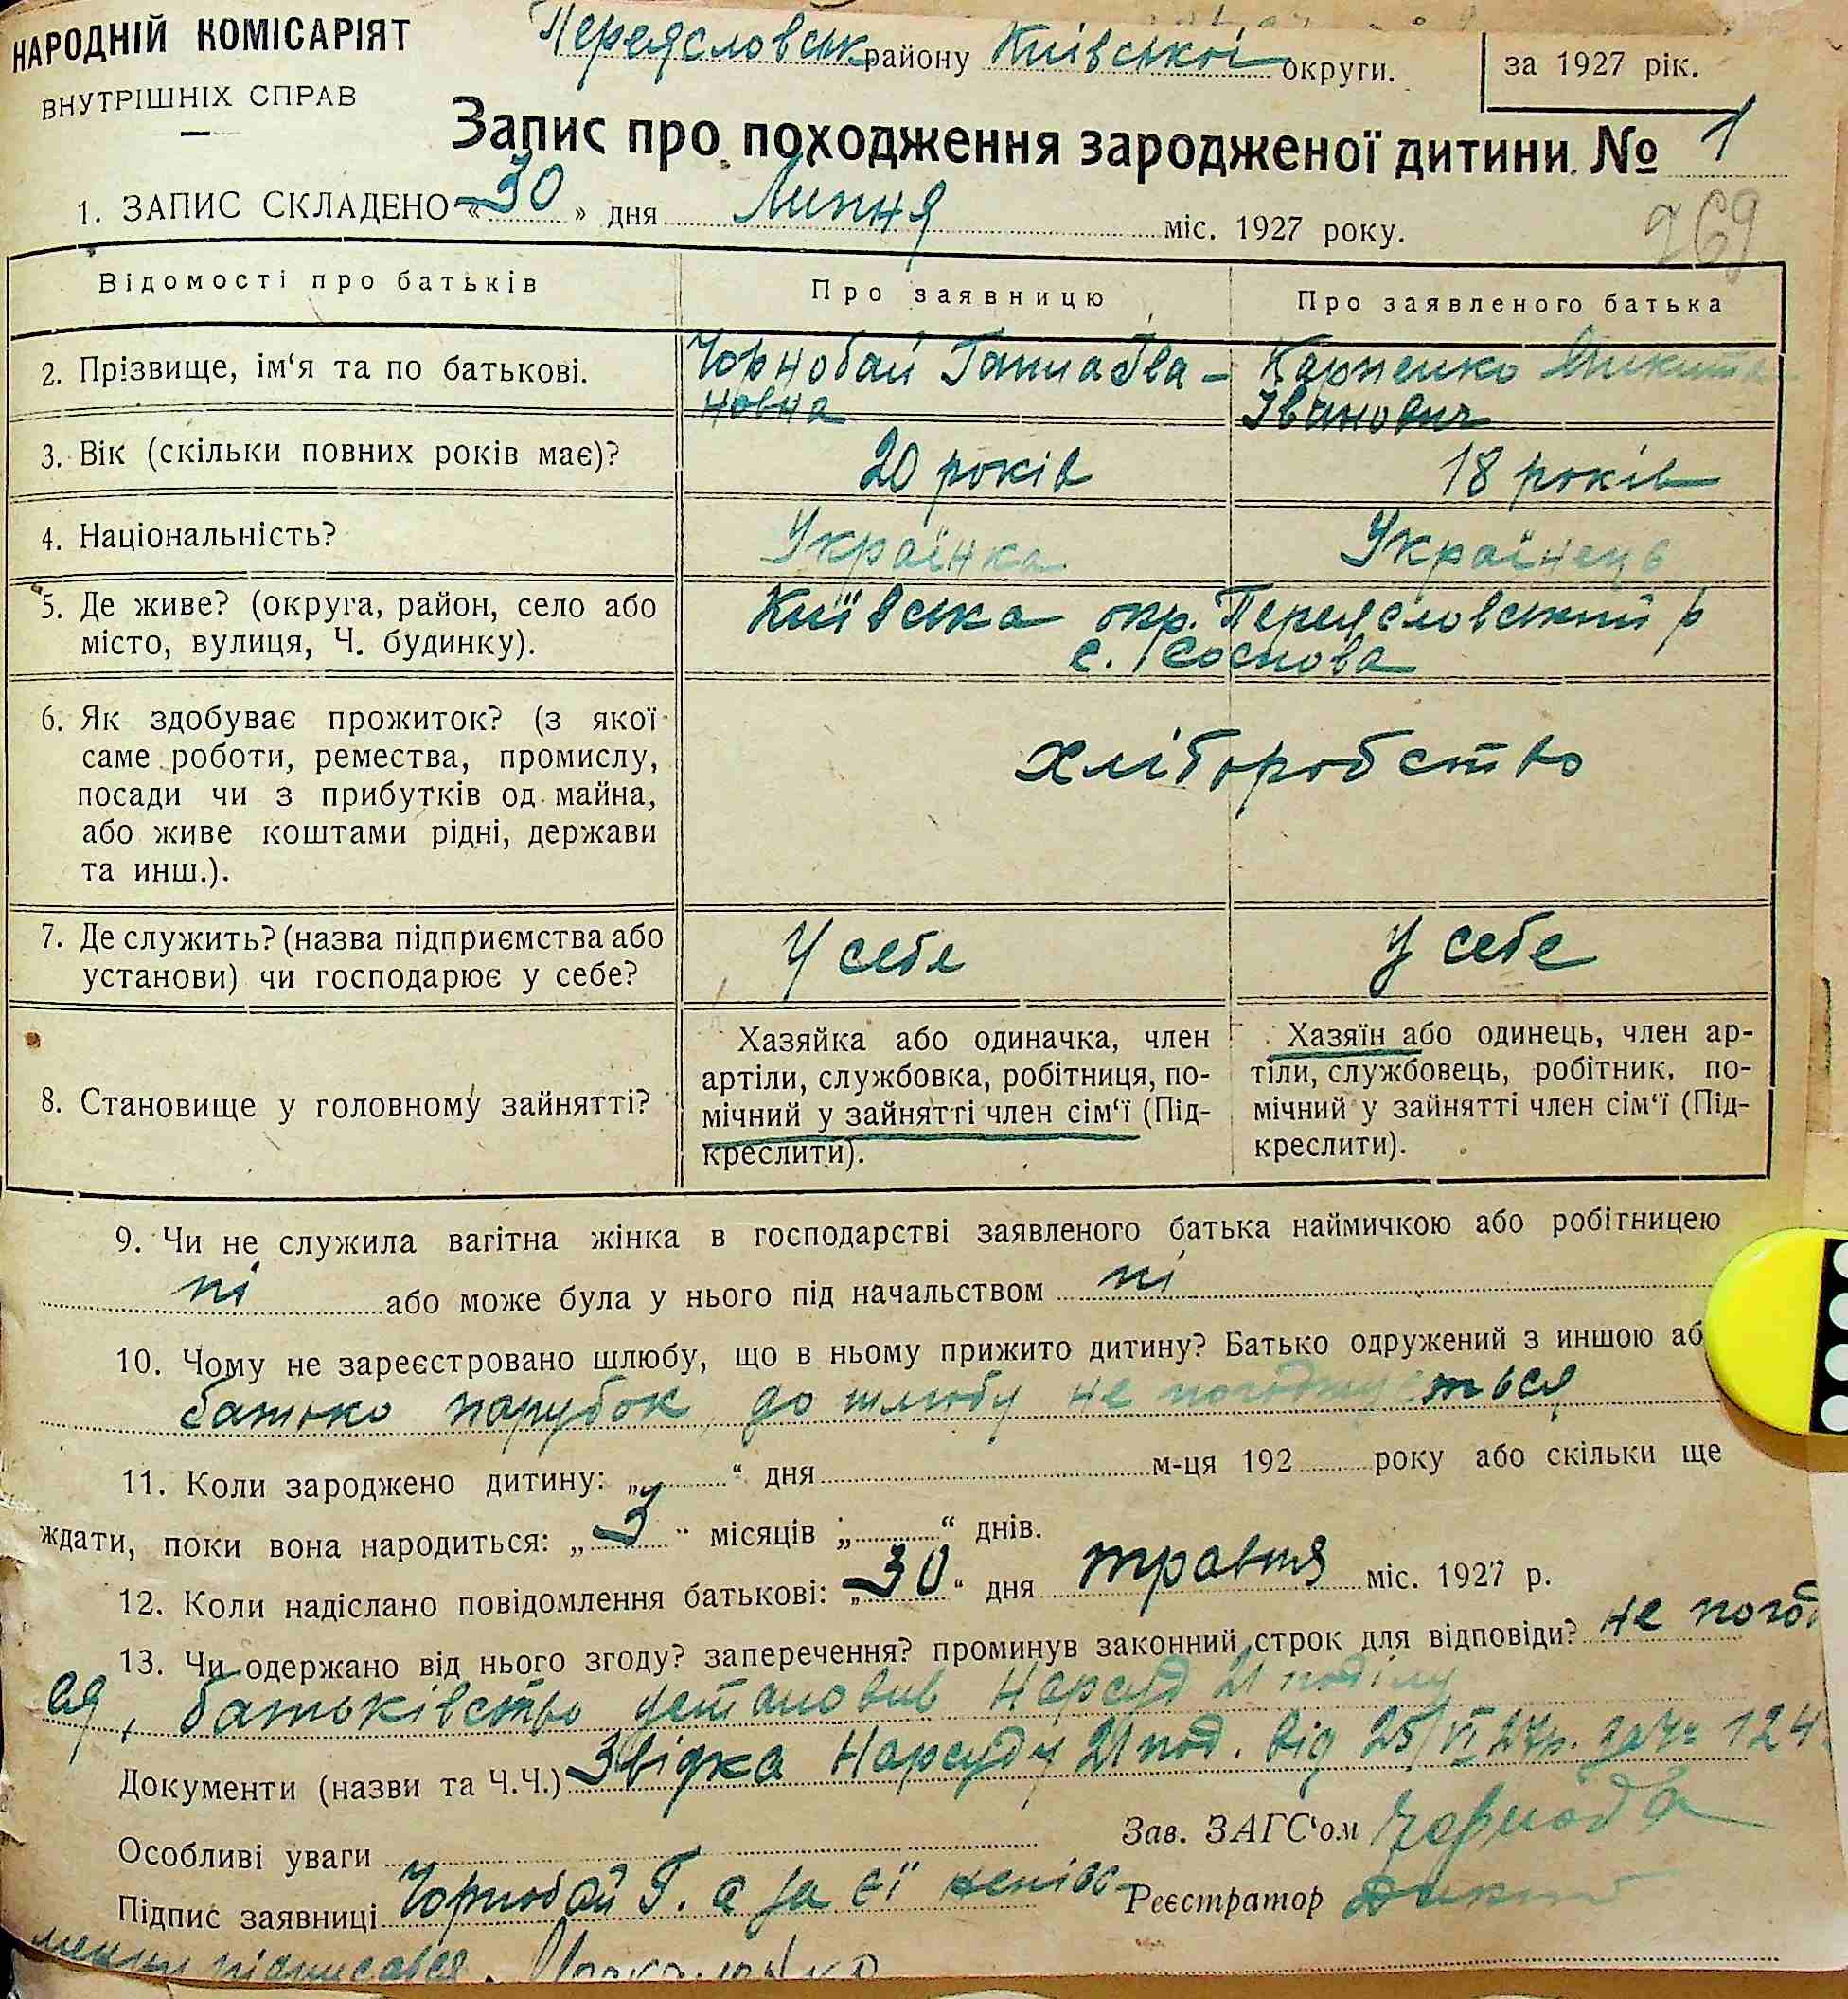 НАРОДНІЙ КОМІСАРІЯТ
ВНУТРІШНІХ СПРАВ
Переясловськ району Київської округи.
за 1927 рік.
Запис про походження зародженої дитини. № 1
769
1. ЗАПИС СКЛАДЕНО «30» дня Липня міс. 1927 року.
Відомості про батьків Про заявницю Про заявленого батька
2. Прізвище, ім‘я та по батькові.
Чорнобай Ганна Іва-
новна
Карпенко Микита
Іванович
3. Вік (скільки повних років має)? 20 років 18 років
4. Національність? Українка Українець
5. Де живе? (округа, район, село або
місто, вулиця, Ч. будинку).
Київська окр. Переясловський р
с. Соснова
6. Як здобуває прожиток? (з якої
саме роботи, ремества, промислу,
посади чи з прибутків од майна,
або живе коштами рідні, держави
та инш.).
Хліборобство
7. Де служить? (назва підприємства або
установи) чи господарює у себе?
У себе
У себе
8. Становище у головному зайнятті?
Хазяйка або одиначка, член
артіли, службовка, робітниця, по-
мічний у зайнятті член сім‘ї (Під-
креслити).
Хазяїн або одинець, член ар-
тіли, службовець, робітник, по-
мічний у зайнятті член сім‘ї (Під-
креслити).
9. Чи не служила вагітна жінка в господарстві заявленого батька наймичкою або робітницею
ні або може була у нього під начальством ні
10. Чому не зареєстровано шлюбу, що в ньому прижито дитину? Батько одружений з иншою аб
батько парубок, до шлюбу не погоджується
11. Коли зароджено дитину: „ “ дня м-ця 192 року або скільки ще
ждати, поки вона народиться: „3“ місяців „ “ днів.
12. Коли надіслано повідомлення батькові: „30“ дня травня міс. 1927 р.
13. Чи одержано від нього згоду? заперечення? проминув законний строк для відповіди? не погод
ся, батьківство установив Нарсуд 21 поділу
Документи (назви та Ч.Ч.) Звідка Нарсуду 21 под. від 25/VI 27р. за № 124
Особливі уваги
Зав. ЗАГС‘ом
Підпис заявниці Чорнобай Г. а за її непись-
Реєстратор
менни підписався